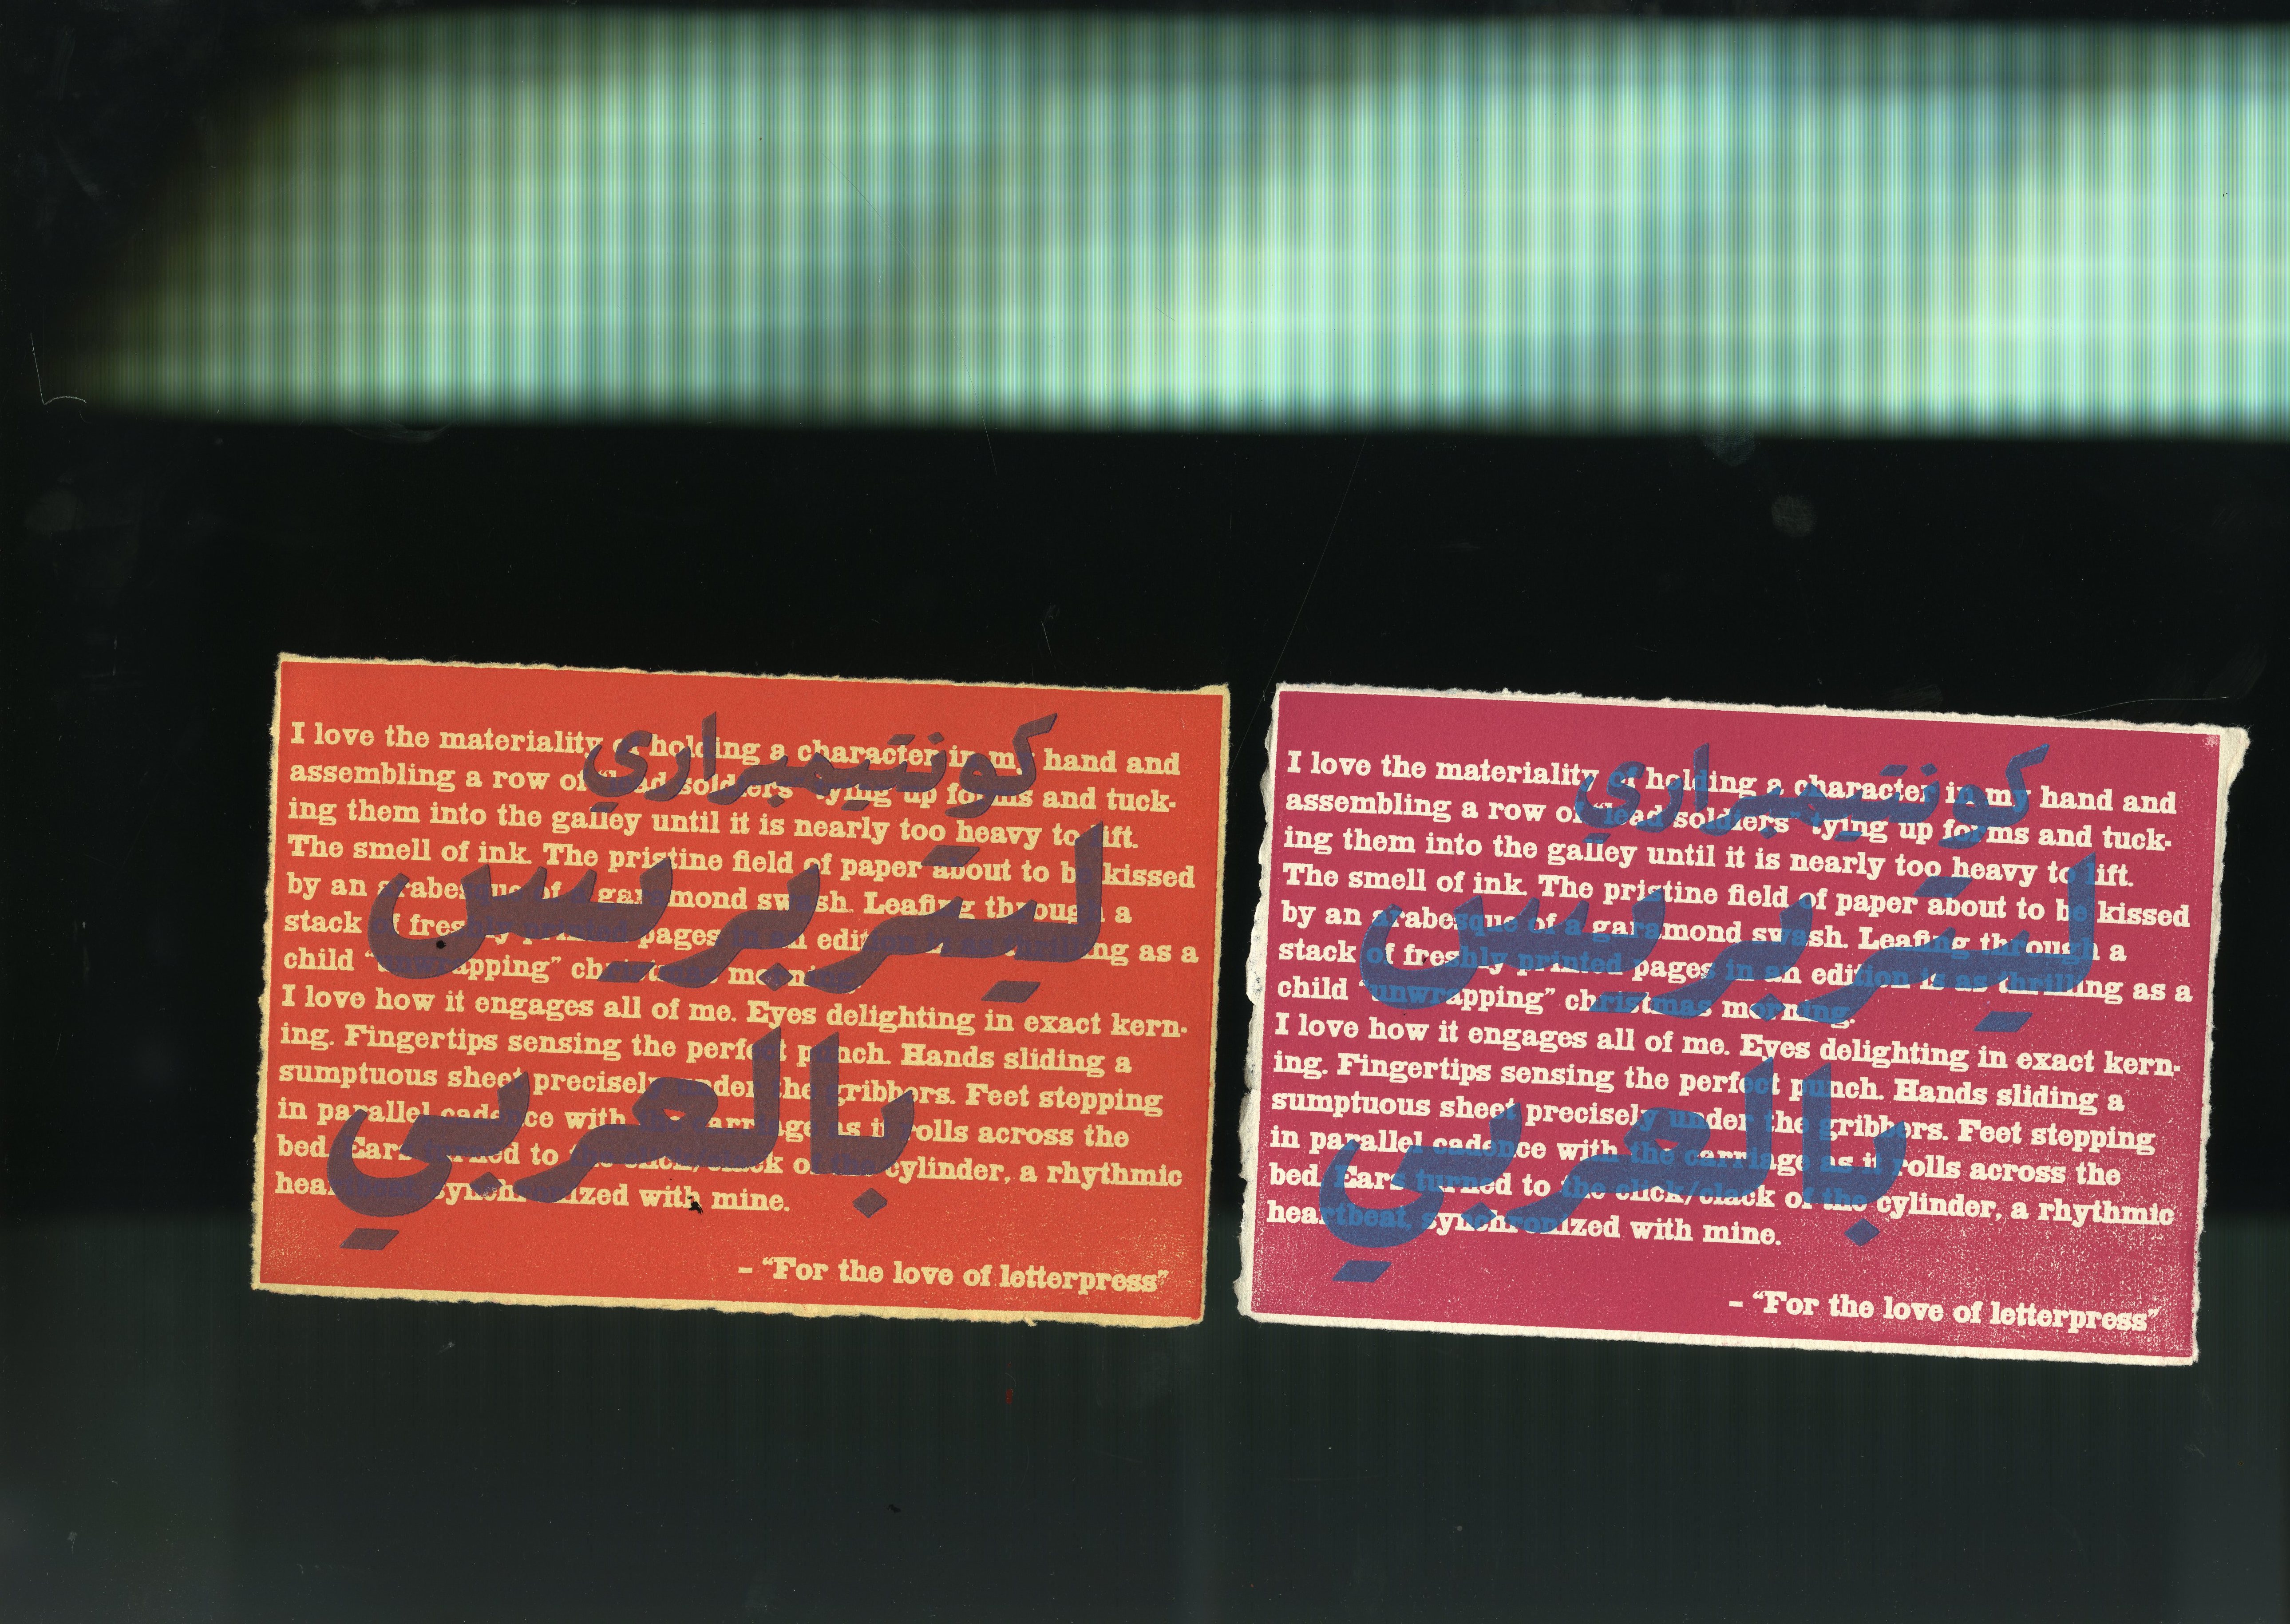 I love the materiality of holding a character in my hand and
assembling a row of “lead soldiers” tying up forms and tuck-
ing them into the galley until it is nearly too heavy to lift.
The smell of ink. The pristine field of paper about to be kissed
by an arabesque of a garamond swash. Leafing through a
stack of freshly printed pages in an edition is as thrilling as a
child “unwrapping” christmas morning.
I love how it engages all of me. Eyes delighting in exact kern-
ing. Fingertips sensing the perfect punch. Hands sliding a
sumptuous sheet precisely under the gribbers. Feet stepping
in parallel cadence with the carriage as it rolls across the
bed. Ears turned to the click/clack of the cylinder, a rhythmic
heartbeat, synchronized with mine.
– “For the love of letterpress”
كونتيمبراري
ليتربريس
بالعربي
I love the materiality of holding a character in my hand and
assembling a row of “lead soldiers” tying up forms and tuck-
ing them into the galley until it is nearly too heavy to lift.
The smell of ink. The pristine field of paper about to be kissed
by an arabesque of a garamond swash. Leafing through a
stack of freshly printed pages in an edition is as thrilling as a
child “unwrapping” christmas morning.
I love how it engages all of me. Eyes delighting in exact kern-
ing. Fingertips sensing the perfect punch. Hands sliding a
sumptuous sheet precisely under the gribbers. Feet stepping
in parallel cadence with the carriage as it rolls across the
bed. Ears turned to the click/clack of the cylinder, a rhythmic
heartbeat, synchronized with mine.
– “For the love of letterpress”
كونتيمبراري
ليتربريس
بالعربي